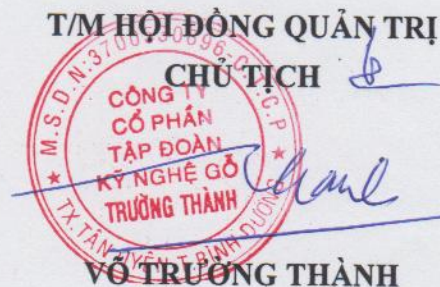 T/M HỘI ĐỒNG QUẢN TRỊ
CHỦ TỊCH
CÔNG TY
CỔ PHẦN
TẬP ĐOÀN
KỸ NGHỆ GỖ
TRƯỜNG THÀNH
TX.TÂN UYÊN T.BÌNH DƯƠNG
VÕ TRƯỜNG THÀNH